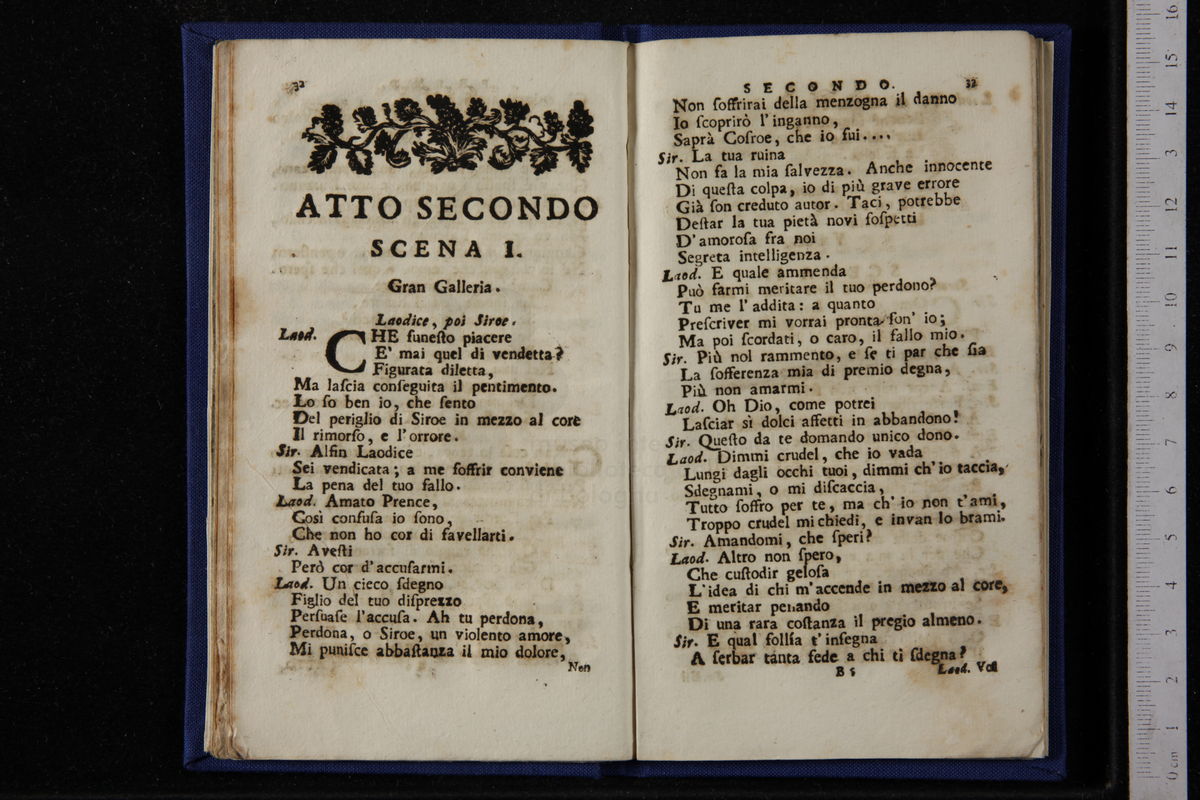 32
ATTO SECONDO
SCENA I.
Gran Galleria.
Laodice, poi Siroe.
Laod. CHE funeſto piacere
E' mai quel di vendetta?
Figurata diletta,
Ma laſcia conſeguita il pentimento.
Lo ſo ben io, che ſento
Del periglio di Siroe in mezzo al core
Il rimorſo, e l'orrore.
Sir. Alfin Laodice
Sei vendicata; a me ſoffrir conviene
La pena del tuo fallo.
Laod. Amato Prence,
Così confuſa io ſono,
Che non ho cor di favellarti.
Sir. Aveſti
Però cor d'accuſarmi.
Laod. Un cieco ſdegno
Figlio del tuo diſprezzo
Perſuaſe l'accuſa. Ah tu perdona,
Perdona, o Siroe, un violento amore,
Mi puniſce abbaſtanza il mio dolore,
Non
SECONDO. 32
Non ſoffrirai della menzogna il danno
Io ſcoprirò l'inganno,
Saprà Coſroe, che io fui....
Sir. La tua ruina
Non fa la mia ſalvezza. Anche innocente
Di queſta colpa, io di più grave errore
Già ſon creduto autor. Taci, potrebbe
Deſtar la tua pietà novi ſoſpetti
D'amoroſa fra noi
Segreta intelligenza.
Laod. E quale ammenda
Può farmi meritare il tuo perdono?
Tu me l'addita: a quanto
Preſcriver mi vorrai pronta ſon' io;
Ma poi ſcordati, o caro, il fallo mio.
Sir. Più nol rammento, e ſe ti par che ſia
La ſofferenza mia di premio degna,
Più non amarmi.
Laod. Oh Dio, come potrei
Laſciar sì dolci affetti in abbandono!
Sir. Queſto da te domando unico dono.
Laod. Dimmi crudel, che io vada
Lungi dagli occhi tuoi, dimmi ch'io taccia,
Sdegnami, o mi diſcaccia,
Tutto ſoffro per te, ma ch' io non t'ami,
Troppo crudel mi chiedi, e invan lo brami.
Sir. Amandomi, che ſperi?
Laod. Altro non ſpero,
Che cuſtodir geloſa
L'idea di chi m'accende in mezzo al core,
E meritar penando
Di una rara coſtanza il pregio almeno.
Sir. E qual follía t'inſegna
A ſerbar tanta fede a chi ti ſdegna?
B 5 Laod. Vol